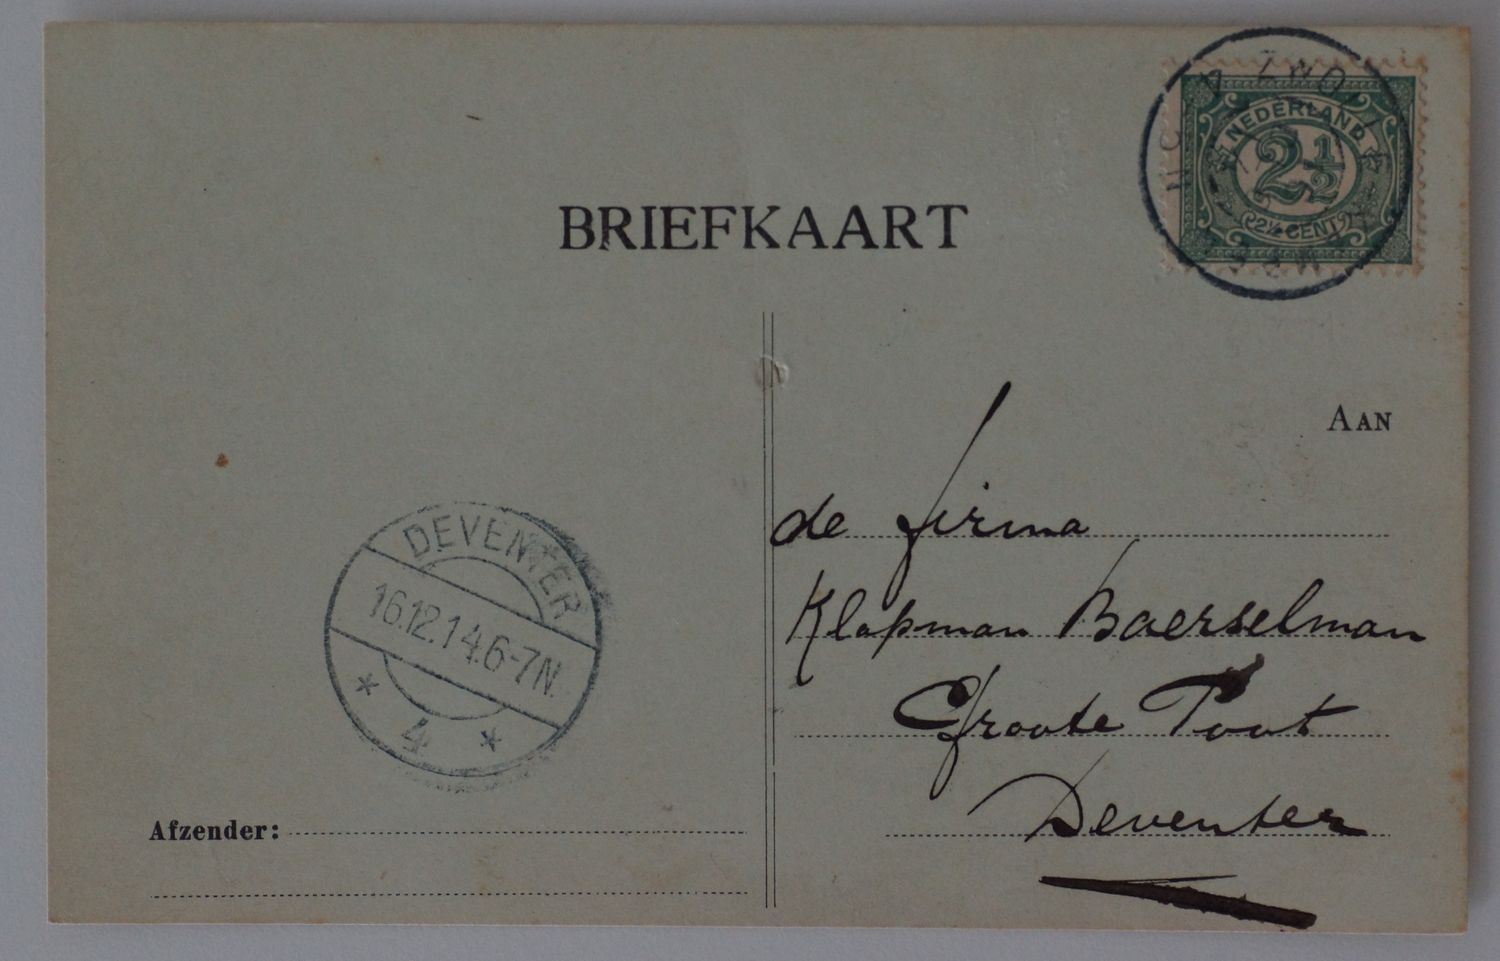 ZWOLLE
NEDERLAND
2½
2½ CENT
BRIEFKAART
AAN
de firma
Klopman Baerselman
Groote Poot
Deventer
DEVENTER
16.12.14.6-7N.
* 4 *
Afzender: